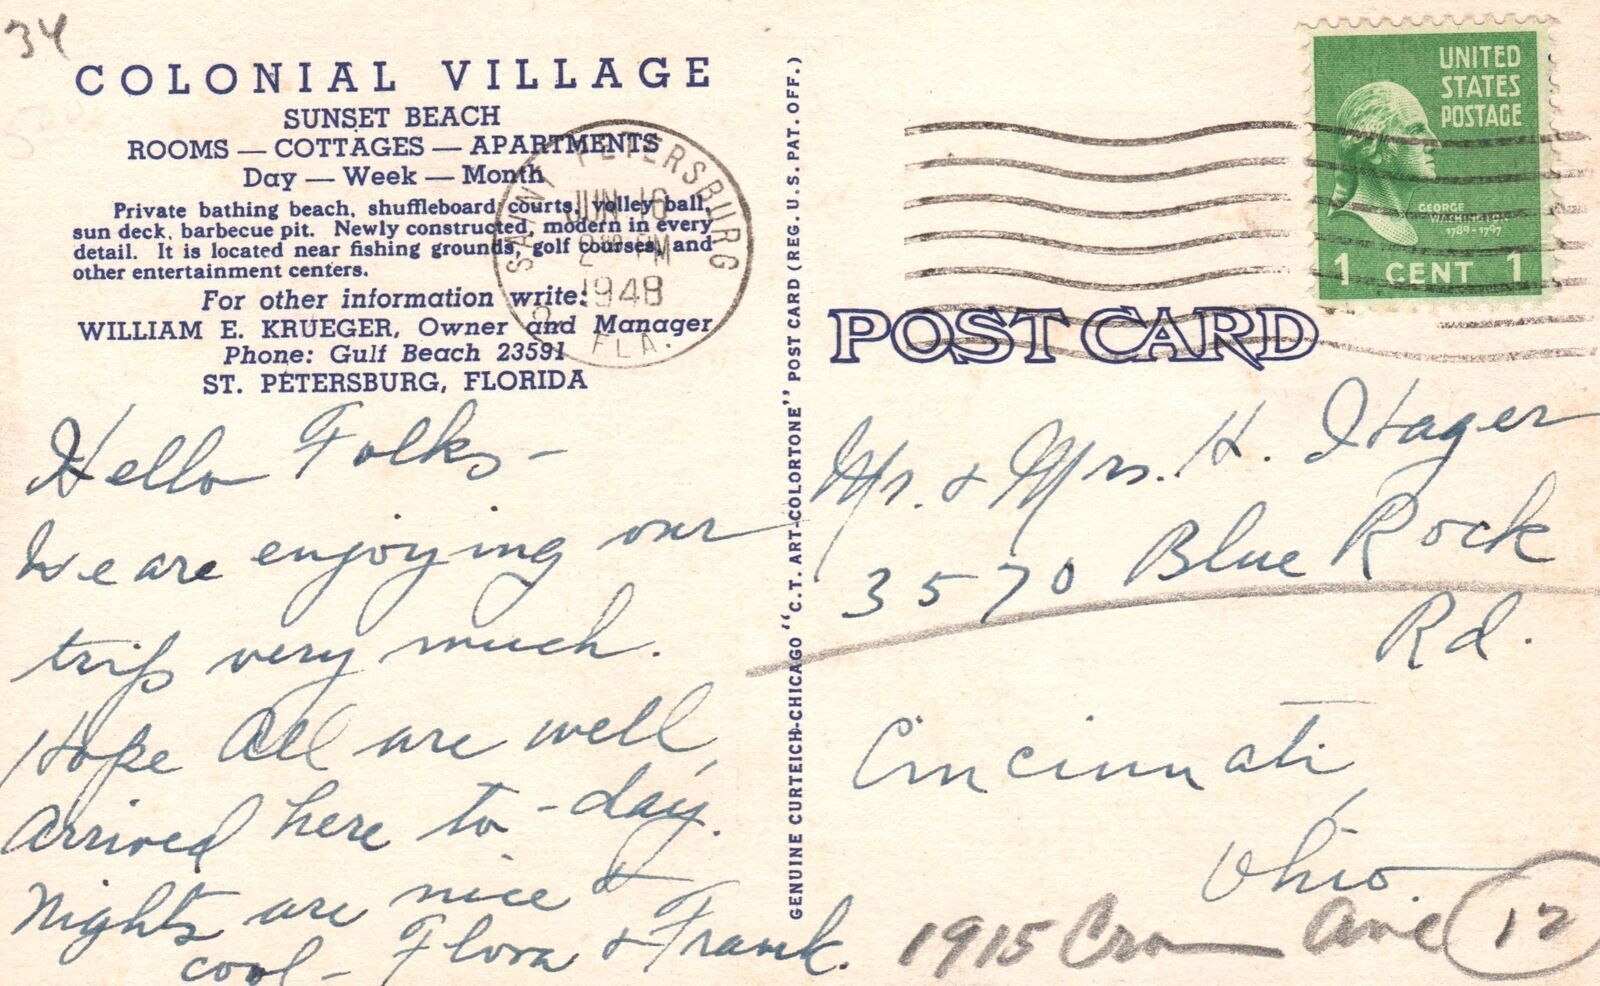 34
COLONIAL VILLAGE
SUNSET BEACH
ROOMS — COTTAGES — APARTMENTS
Day — Week — Month
Private bathing beach, shuffleboard courts, volley ball,
sun deck, barbecue pit. Newly constructed, modern in every
detail. It is located near fishing grounds, golf courses, and
other entertainment centers.
For other information write:
WILLIAM E. KRUEGER, Owner and Manager
Phone: Gulf Beach 23591
ST. PETERSBURG, FLORIDA
SAINT PETERSBURG
JUN 10
2 PM
1948
FLA.
Hello Folks –
We are enjoying our
trip very much.
Hope All are well,
Arrived here to-day.
Nights are nice &
cool – Flora & Frank.
GENUINE CURTEICH-CHICAGO "C.T. ART-COLORTONE" POST CARD (REG. U.S. PAT. OFF.)
UNITED
STATES
POSTAGE
GEORGE
WASHINGTON
1789-1797
1 CENT 1
POST CARD
Mr. & Mrs. H. Hager
3570 Blue Rock
Rd.
Cincinnati,
Ohio
1915 Ave 12